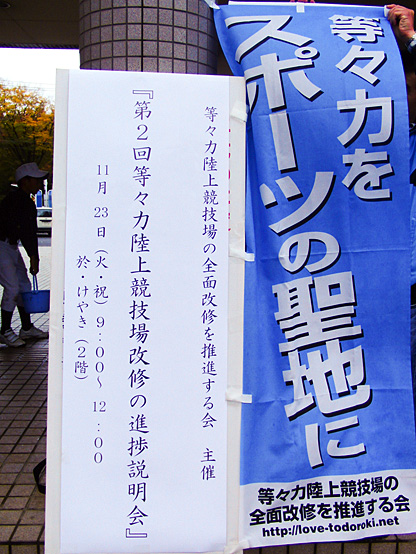 等々力陸上競技場の全面改修を推進する会　主催
『第2回等々力陸上競技場改修の進捗説明会』
11月23日(火・祝)9:00~12:00
於・けやき(2階)
等々力を
スポーツの聖地に
等々力陸上競技場の
全面改修を推進する会
http://love-todoroki.net